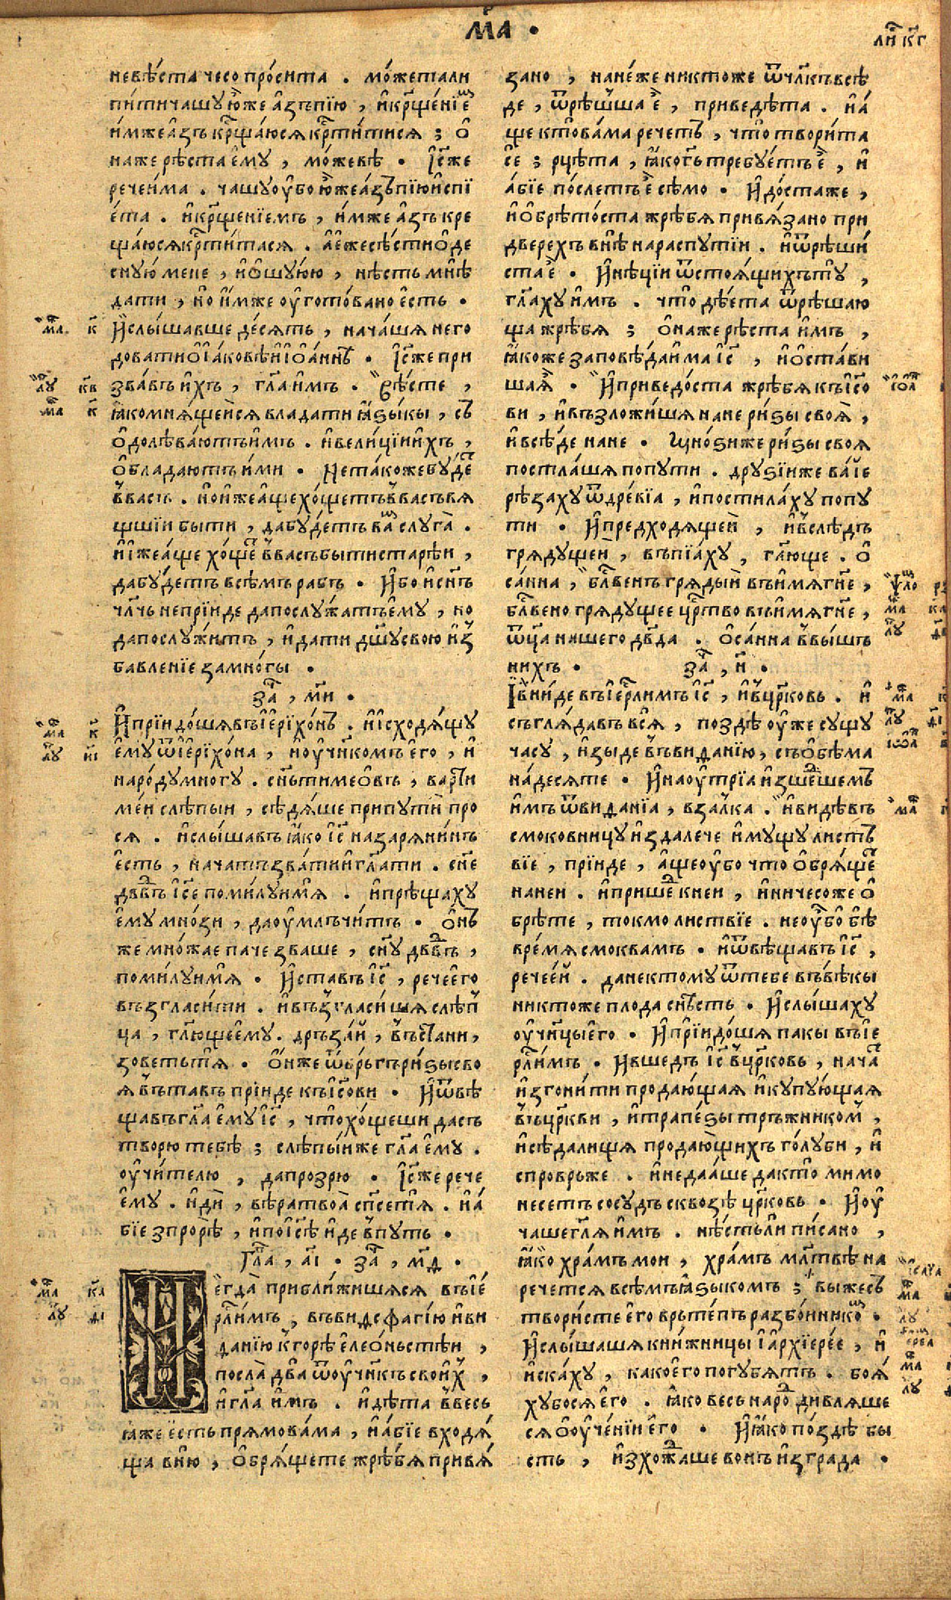 МР҃А .
ли҃ к҃г
невѣ́ста чесо про́сита . мо́жетали
пи́ти чашу ю́же а́зъ пїю̀ , и҆ кр҃ще́нїе
и҆мже а҆зъ кр҃ща́юся кр҃ти́тися ; ѻ҆
на же рѣ́ста е҆му̀ , мо́жевѣ . і҆с҃ же
рече и҆ма . чашу у҆бо ю҆́же а҆зъ пїю̀ и҆спї
е́та . и҆ кр҃ще́нїемъ , и҆мже а҆зъ кре
ща́юся кр҃ти́тася . а҆ е́же сѣ́сти ѻ҆де
сную мене , и҆ ѻ҆шу́юю , нѣ́сть мнѣ̀
дати , но и҆́мже у҆гото́вано е҆сть .
И҆ слы́шавше де́сять , нача́шя него
довати ѻ҆ і҆а́ковѣ и҆ і҆ѻа́ннѣ . І҆с҃ же при
зва́въ и҆хъ , гл҃а и҆мъ . вѣ́сте ,
ꙗ҆ко мня́щейся владати ꙗ҆зы́кы , съ
ѻ҆долѣва́ютъ и҆мъ . и҆ вели́цїи и҆хъ ,
ѻ҆блада́ютъ и҆ми . Не та́коже бу́де
в ва́съ . но и҆́же а҆́ще хо́щетъ в ва́съ вя
щшїи быти , да бу́детъ ва слуга̀ .
и҆ и҆́же а҆́ще хо́ще в ва́съ быти старѣи ,
да бу́детъ всѣ́мъ рабъ . И҆бо и҆ сн҃ъ
чл҃чь не прїи́де да послу́жатъ е҆му̀ , но
да послу́житъ , и҆ дати дш҃у свою и҆з
бавленїе за мно́гы .
за҃ , м҃и .
И҆ прїидо́шя въ і҆ерїхо́нъ . и҆ и҆сходя́щу
е҆му̀ ѿ і҆ерїхо́на , и҆ у҆чн҃ко́мъ е҆го̀ , и҆
наро́ду мно́гу . сн҃ъ тиме́ѡвъ , варти
ме́и слѣпы́и , сѣдя́ше при путѝ про
ся . и҆ слы́шавъ ꙗ҆́ко і҆с҃ назаряни́нъ
е҆сть , нача́тъ зва́ти и҆ гл҃ати . сн҃е
дв҃въ і҆с҃е поми́луи мя̀ . и҆ прѣща́ху
е҆му̀ мно́зи , да у҆млъчи́тъ . Ѻ҆нъ
же мно́жае паче зваше , сн҃у дв҃въ ,
поми́луи мя̀ . И҆ ставъ і҆с҃ , рече е҆го̀
възгласи́ти . и҆ възгласи́шя слѣпъ
ца , гл҃юще е҆му . дръза́и , въста́ни ,
зове́тъ тя . Ѻ҆нже ѿвръ́гъ ри́зы сво
я̀ въста́въ прїи́де къ і҆с҃ови . И҆ ѿвѣ
ща́въ гл҃а е҆му̀ і҆с҃ , что хо́щеши да съ
творю тебѣ̀ ; слѣпы́и же гл҃а е҆му̀ .
у҆чи́телю , да прозрю . І҆с҃ же рече
е҆му̀ . и҆дѝ , вѣ́ра твоа̀ сп҃се́ тя . и҆ а҆́
бїе зпрорѣ̀ , и҆ по і҆с҃ѣ и҆де в путь .
гл҃а , а҃і . за҃ , м҃д .
И҆ е҆гда̀ прибли́жишяся въ і҆е
рл҃и́мъ , въ виѳсфагїю и҆ ви
да́нїю к горѣ̀ е҆лео́ньстѣи ,
посла̀ два̀ ѿ у҆чн҃къ свои́хъ ,
и҆ гл҃а и҆мъ . и҆дѣ́та в весь
ꙗ҆́же е҆сть прямо ва́ма , и҆ а҆́бїе входя́
ща в ню , ѻ҆бря́щете жрѣбя̀ привя́
зано , на не́же никто́же ѿ чл҃къ всѣ́
де , ѿрѣ́шша е҆̀ , приведѣ́та . и҆ а҆́
ще кто̀ ва́ма речетъ , что̀ твори́та
сѐ ; рцѣ́та , ꙗ҆́ко гь҃ требу́етъ е҆̀ , и҆
а҆́бїе по́слетъ е҆̀ сѣ́мо . И҆до́ста же ,
и҆ ѻ҆брѣто́ста жрѣбя̀ привя́зано при
две́рехъ внѣ̀ на распу́тїи . и҆ ѿрѣши́
ста е҆̀ . И҆ нѣ́цїи ѿ стоя́щихъ ту̀ ,
гл҃аху и҆мъ . что̀ дѣ́ета ѿрѣша́ю
ща жрѣбя̀ ; ѻ҆на же рѣ́ста и҆мъ ,
ꙗ҆́коже заповѣ́да и҆ма і҆с҃ , и҆ ѻ҆ста́ви
шая̀ . И҆ приведо́ста жрѣбя̀ къ і҆с҃о
ви , и҆ възложи́шя на не ри́зы своя̀ ,
и҆ всѣ́де на не . Мно́зи же ри́зы своя
постла́шя по пути . друзїи же ва́їе
рѣ́заху ѿ дре́вїа , и҆ постила́ху по пу
ти . И҆ предходя́щеи , и҆ вслѣ́дъ
гряду́щеи , въпїа́ху , гл҃юще . ѻ҆
са́нна , бл҃ве́нъ гряды́и въ и҆мя гн҃е ,
бл҃ве́но гряду́щее цр҃тво въ и҆мя гн҃е ,
ѿц҃а нашего дв҃да . Ѻ҆са́нна в вы́шъ
нихъ . за҃ , н҃ .
І҆ вни́де въ і҆ерл҃имъ і҆с҃ , и҆ в цр҃ковь . и҆
съгляда́въ вся̀ , по́здѣ у҆же су́щу
часу , и҆зы́де въ виѳа́нїю , съ ѻ҆бѣ́ма
на́десяте . И҆ на у҆трїа и҆зше́дшемъ
и҆мъ ѿ виѳанїа , взалка̀ . и҆ ви́дѣвъ
смоко́вницу и҆здалече и҆му́щу ли́ств
вїе , прїи́де , а҆́ще у҆бо что̀ ѻ҆бря́ще
на неи . и҆ прише́д к неи , и҆ ничесо́же ѻ҆
брѣ́те , то́кмо ли́ствїе . не у҆́бо бѣ̀
вре́мя смо́квамъ . и҆ ѿвѣща́въ і҆с҃ ,
рече е҆́и . да не к тому̀ ѿ тебе въ вѣ́кы
никто́же плода̀ снѣ́сть . И҆ слы́шаху
у҆чн҃цы е҆го̀ . И҆ прїидо́шя пакы въ і҆е
рл҃имъ . И҆ вше́дъ і҆с҃ в цр҃ковь , нача́т
и҆згони́ти продаю́щая и҆ купу́ющая
в цр҃кви , и҆ трапе́зы тръ́жником ,
и҆ сѣда́лища продаю́щихъ го́луби , и҆
спровръже . и҆ недаа́ше да кто̀ ми́мо
несе́тъ сосу́дъ сквозѣ̀ цр҃ковь . И҆ у҆
чаше гл҃я и҆мъ . нѣ́сть ли пи́сано ,
ꙗ҆́ко хра́мъ мои , хра́мъ мл҃твѣ на
рече́тся всѣ́мъ ꙗ҆зы́комъ ; вы́ же съ
твористе е҆го врьте́пъ разбо́инико .
И҆ слы́шашя кни́жницы и҆ а҆рхїере́е , и҆
и҆ска́ху , како е҆го погубя́тъ . боя́
хубося е҆го . ꙗ҆́ко весь наро́д дивля́ше
ся ѻ҆ у҆че́нїи е҆го . И҆ ꙗ҆́ко по́здѣ бы
сть , и҆зхожда́ше во́нъ и҆з гра́да .